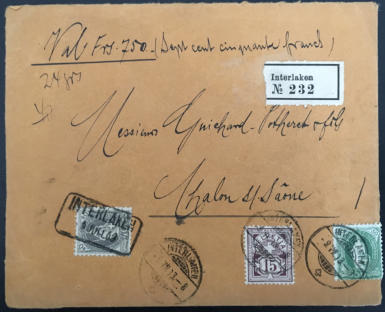 Val. Frs. 750. (Sept cent cinquante francs)
24 grs
Interlaken
№ 232
Messieurs Guichard-Potheret & fils
Chalon s/Saône
INTERLAKEN
INTERLAKEN
15